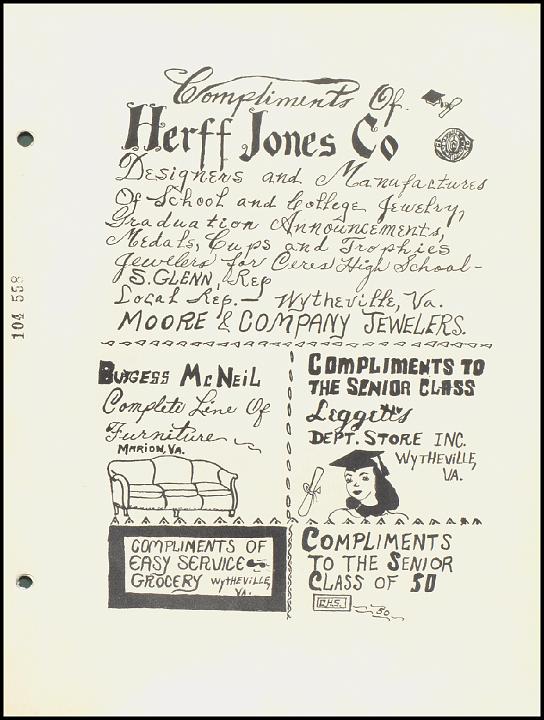 Compliments Of.
Herff Jones Co
Designers and Manufactures
Of School and College Jewelry,
Graduation Announcements,
Medals, Cups and Trophies
Jewelers for Ceres High School-
S. GLENN, Rep
Local Rep. — Wytheville, Va.
MOORE & COMPANY JEWELERS.
BURGESS McNEIL
Complete Line Of
Furniture
MARION, VA.
COMPLIMENTS TO
THE SENIOR CLASS
Leggetts
DEPT. STORE INC.
WYTHEVILLE,
VA.
COMPLIMENTS OF
EASY SERVICE
GROCERY WYTHEVILLE,
VA.
COMPLIMENTS
TO THE SENIOR
CLASS OF 50
C.H.S.
50
104 558